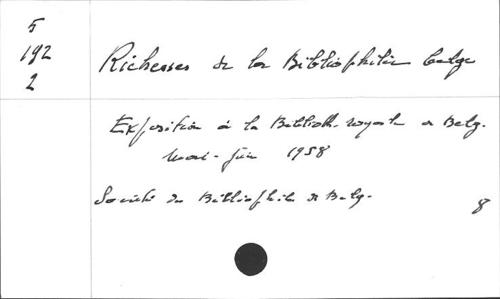 5
192
2
Richesses de la Bibliophilie belge
Exposition à la Biblioth. royale de Belg.
mai - juin 1958
Société des Bibliophiles de Belg.
8